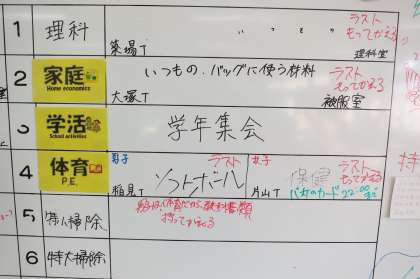 1 理科 築場T 〃 〃 〃 〃 ラスト もってかえる 理科室
2 家庭 Home economics 大塚T いつもの.バッグに使う材料 ラスト もってかえる 被服室
学活 School activities 学年集会
4 体育 P.E. 男子 稲見T ソフトボール ラスト 女子 片山T 保健 ラスト もってかえる
22:00まで
5 特大掃除 持ってかえる
6 特大掃除
持